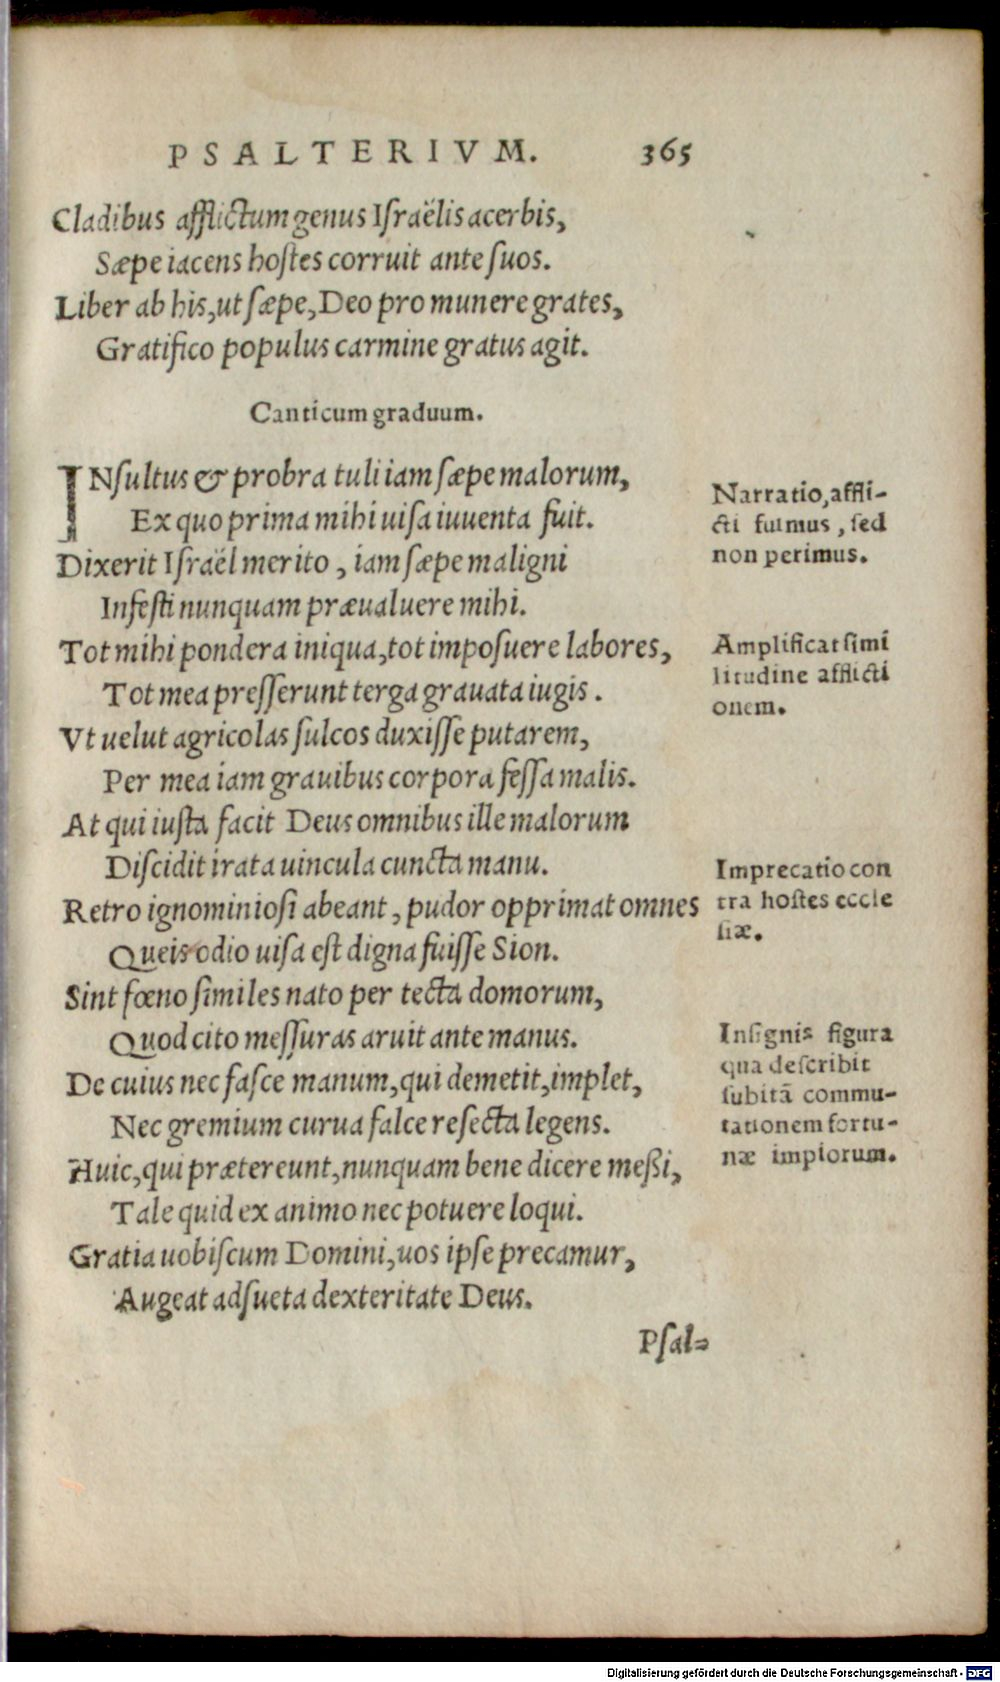 PSALTERIVM. 365
Cladibus afflictum genus Iſraëlis acerbis,
Sæpe iacens hoſtes corruit ante ſuos.
Liber ab his, ut ſæpe, Deo pro munere grates,
Gratifico populus carmine gratus agit.
Canticum graduum.
INſultus & probra tuli iam ſæpe malorum,
Ex quo prima mihi uiſa iuuenta fuit.
Dixerit Iſraël merito, iam ſæpe maligni
Infeſti nunquam præualuere mihi.
Tot mihi pondera iniqua, tot impoſuere labores,
Tot mea preſſerunt terga grauata iugis.
Vt uelut agricolas ſulcos duxiſſe putarem,
Per mea iam grauibus corpora feſſa malis.
At qui iuſta facit Deus omnibus ille malorum
Diſcidit irata uincula cuncta manu.
Retro ignominioſi abeant, pudor opprimat omnes
Queis odio uiſa eſt digna fuiſſe Sion.
Sint fœno ſimiles nato per tecta domorum,
Quod cito meſſuras aruit ante manus.
De cuius nec faſce manum, qui demetit, implet,
Nec gremium curua falce reſecta legens.
Huic, qui prætereunt, nunquam bene dicere meßi,
Tale quid ex animo nec potuere loqui.
Gratia uobiſcum Domini, uos ipſe precamur,
Augeat adſueta dexteritate Deus.
Pſal=
Narratio, affli-
cti fuimus, ſed
non perimus.
Amplificat ſimi
litudine afflicti
onem.
Imprecatio con
tra hoſtes eccle
ſiæ.
Inſignis figura
qua deſcribit
ſubitā commu-
tationem fortu-
næ impiorum.
Digitalisierung gefördert durch die Deutsche Forschungsgemeinschaft - DFG